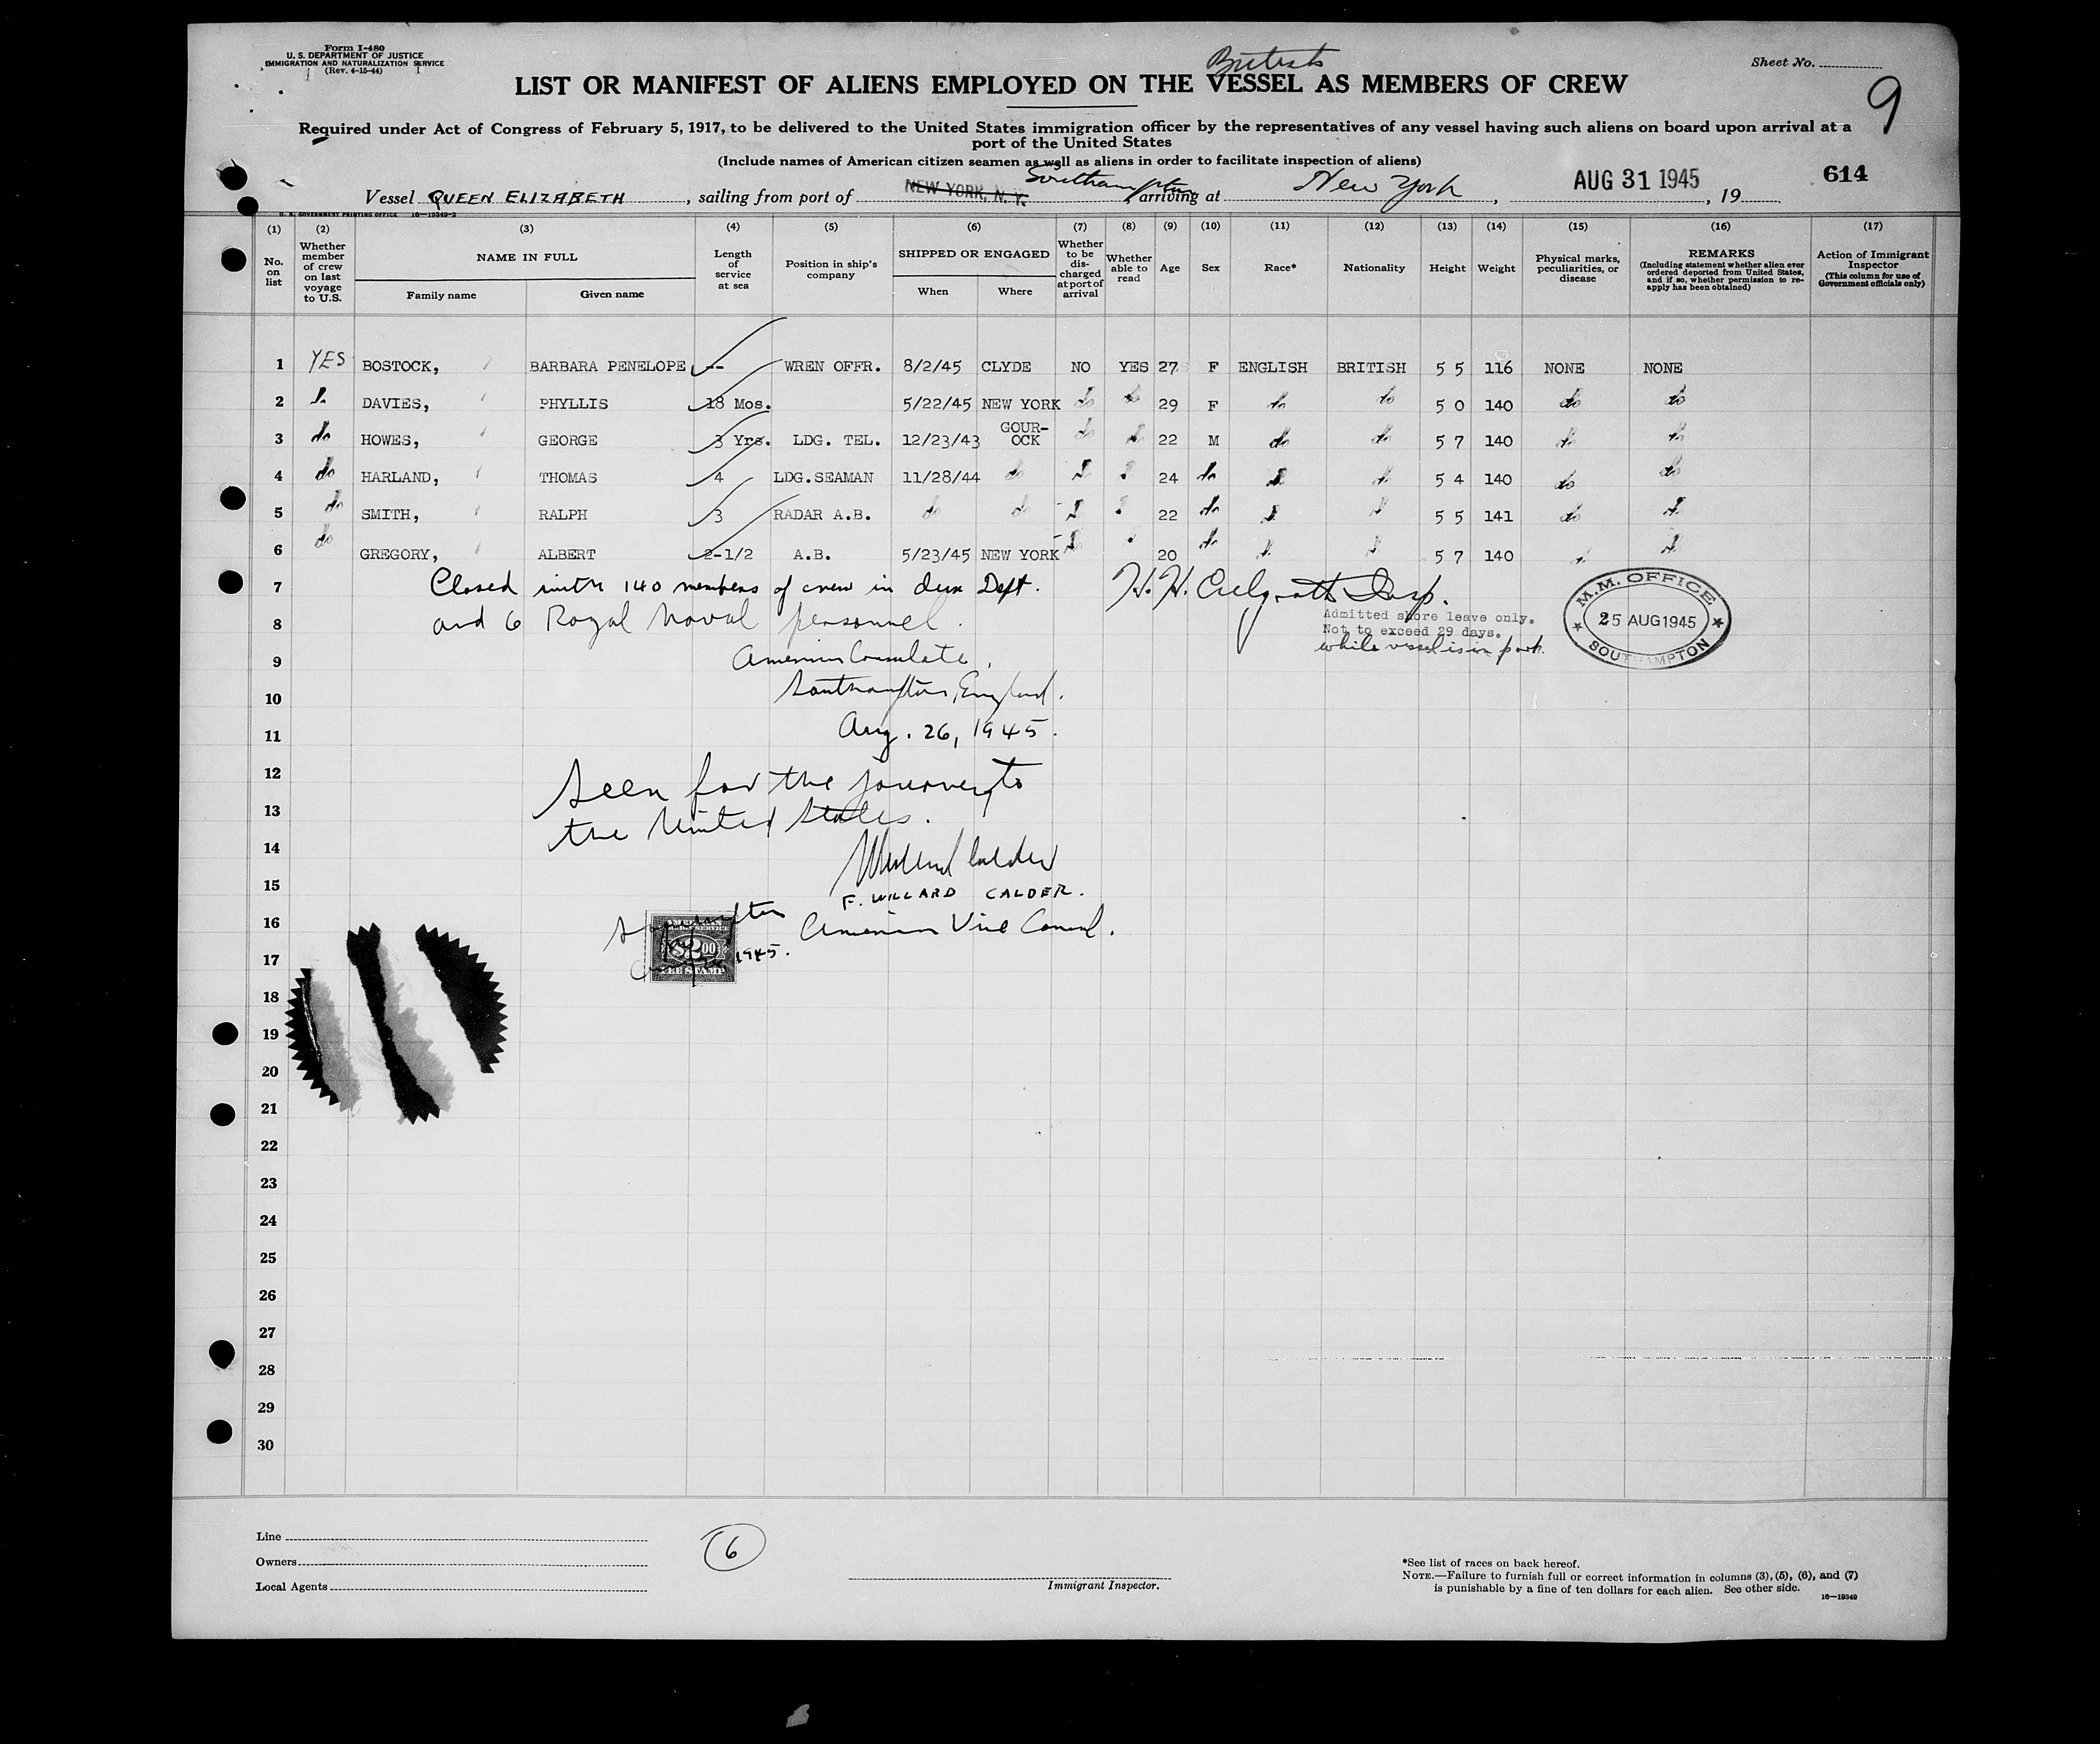 Form I-480
U. S. DEPARTMENT OF JUSTICE
IMMIGRATION AND NATURALIZATION SERVICE
(Rev. 4-15-44)
British
Sheet No.
9
LIST OR MANIFEST OF ALIENS EMPLOYED ON THE VESSEL AS MEMBERS OF CREW
Required under Act of Congress of February 5, 1917, to be delivered to the United States immigration officer by the representatives of any vessel having such aliens on board upon arrival at a
port of the United States
(Include names of American citizen seamen as well as aliens in order to facilitate inspection of aliens)
614
Vessel QUEEN ELIZABETH, sailing from port of NEW YORK, N.Y. Southampton, arriving at New York, AUG 31 1945, 19
U. S. GOVERNMENT PRINTING OFFICE 16-19349-2
(1) (2) (3) (4) (5) (6) (7) (8) (9) (10) (11) (12) (13) (14) (15) (16) (17)
No. on list
Whether member of crew on last voyage to U.S.
NAME IN FULL
Family name
Given name
Length of service at sea
Position in ship's company
SHIPPED OR ENGAGED
When
Where
Whether to be discharged at port of arrival
Whether able to read
Age
Sex
Race*
Nationality
Height
Weight
Physical marks, peculiarities, or disease
REMARKS
(Including statement whether alien ever ordered deported from United States, and if so, whether permission to re-apply has been obtained)
Action of Immigrant Inspector
(This column for use of Government officials only)
1 YES BOSTOCK, BARBARA PENELOPE -- WREN OFFR. 8/2/45 CLYDE NO YES 27 F ENGLISH BRITISH 5 5 116 NONE NONE
2 do DAVIES, PHYLLIS 18 Mos. 5/22/45 NEW YORK do do 29 F do do 5 0 140 do do
3 do HOWES, GEORGE 3 Yrs. LDG. TEL. 12/23/43 GOUR-OCK do do 22 M do do 5 7 140 do do
4 do HARLAND, THOMAS 4 LDG.SEAMAN 11/28/44 do do do 24 do do do 5 4 140 do do
5 do SMITH, RALPH 3 RADAR A.B. do do do do 22 do do do 5 5 141 do do
6 do GREGORY, ALBERT 2-1/2 A.B. 5/23/45 NEW YORK do do 20 do do do 5 7 140 do do
7 Closed with 140 members of crew in Dept.
8 and 6 Royal Naval personnel.
H. H. Insp.
Admitted shore leave only.
Not to exceed 29 days.
while vessel is in port.
M.M. OFFICE
25 AUG 1945
SOUTHAMPTON
9 American Consulate,
10 Southampton, England.
11 Aug. 26, 1945.
12 Seen for the journey to
13 the United States.
14 Willard Calder
15 F. WILLARD CALDER.
16 American Vice Consul.
Southampton
1945.
AMERICAN
SERVICE
$2.00
FEE STAMP
17
18
19
20
21
22
23
24
25
26
27
28
29
30
Line
Owners
Local Agents
6
Immigrant Inspector.
*See list of races on back hereof.
NOTE.—Failure to furnish full or correct information in columns (3), (5), (6), and (7)
is punishable by a fine of ten dollars for each alien. See other side.
16—19349